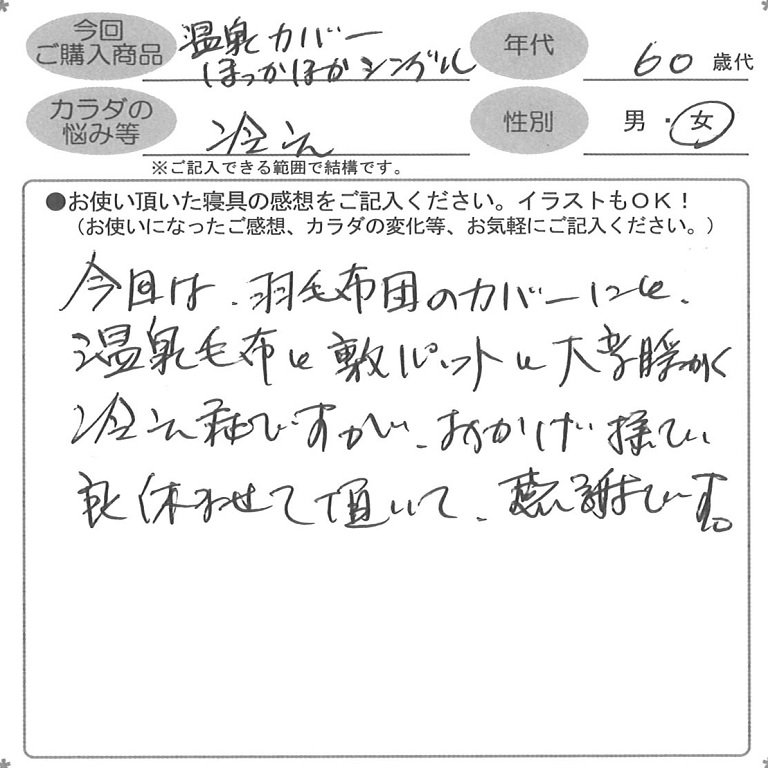 今回
ご購入商品
温泉カバー
ほっかほか シングル
年代
60 歳代
カラダの
悩み等
冷え
性別
男・女
※ご記入できる範囲で結構です。
●お使い頂いた寝具の感想をご記入ください。イラストもOK!
(お使いになったご感想、カラダの変化等、お気軽にご記入ください。)
今回は、羽毛布団のカバーにも、
温泉毛布と敷パットと大
冷え症ですが、おかげ様で
良く休ませて頂いて、感謝です。